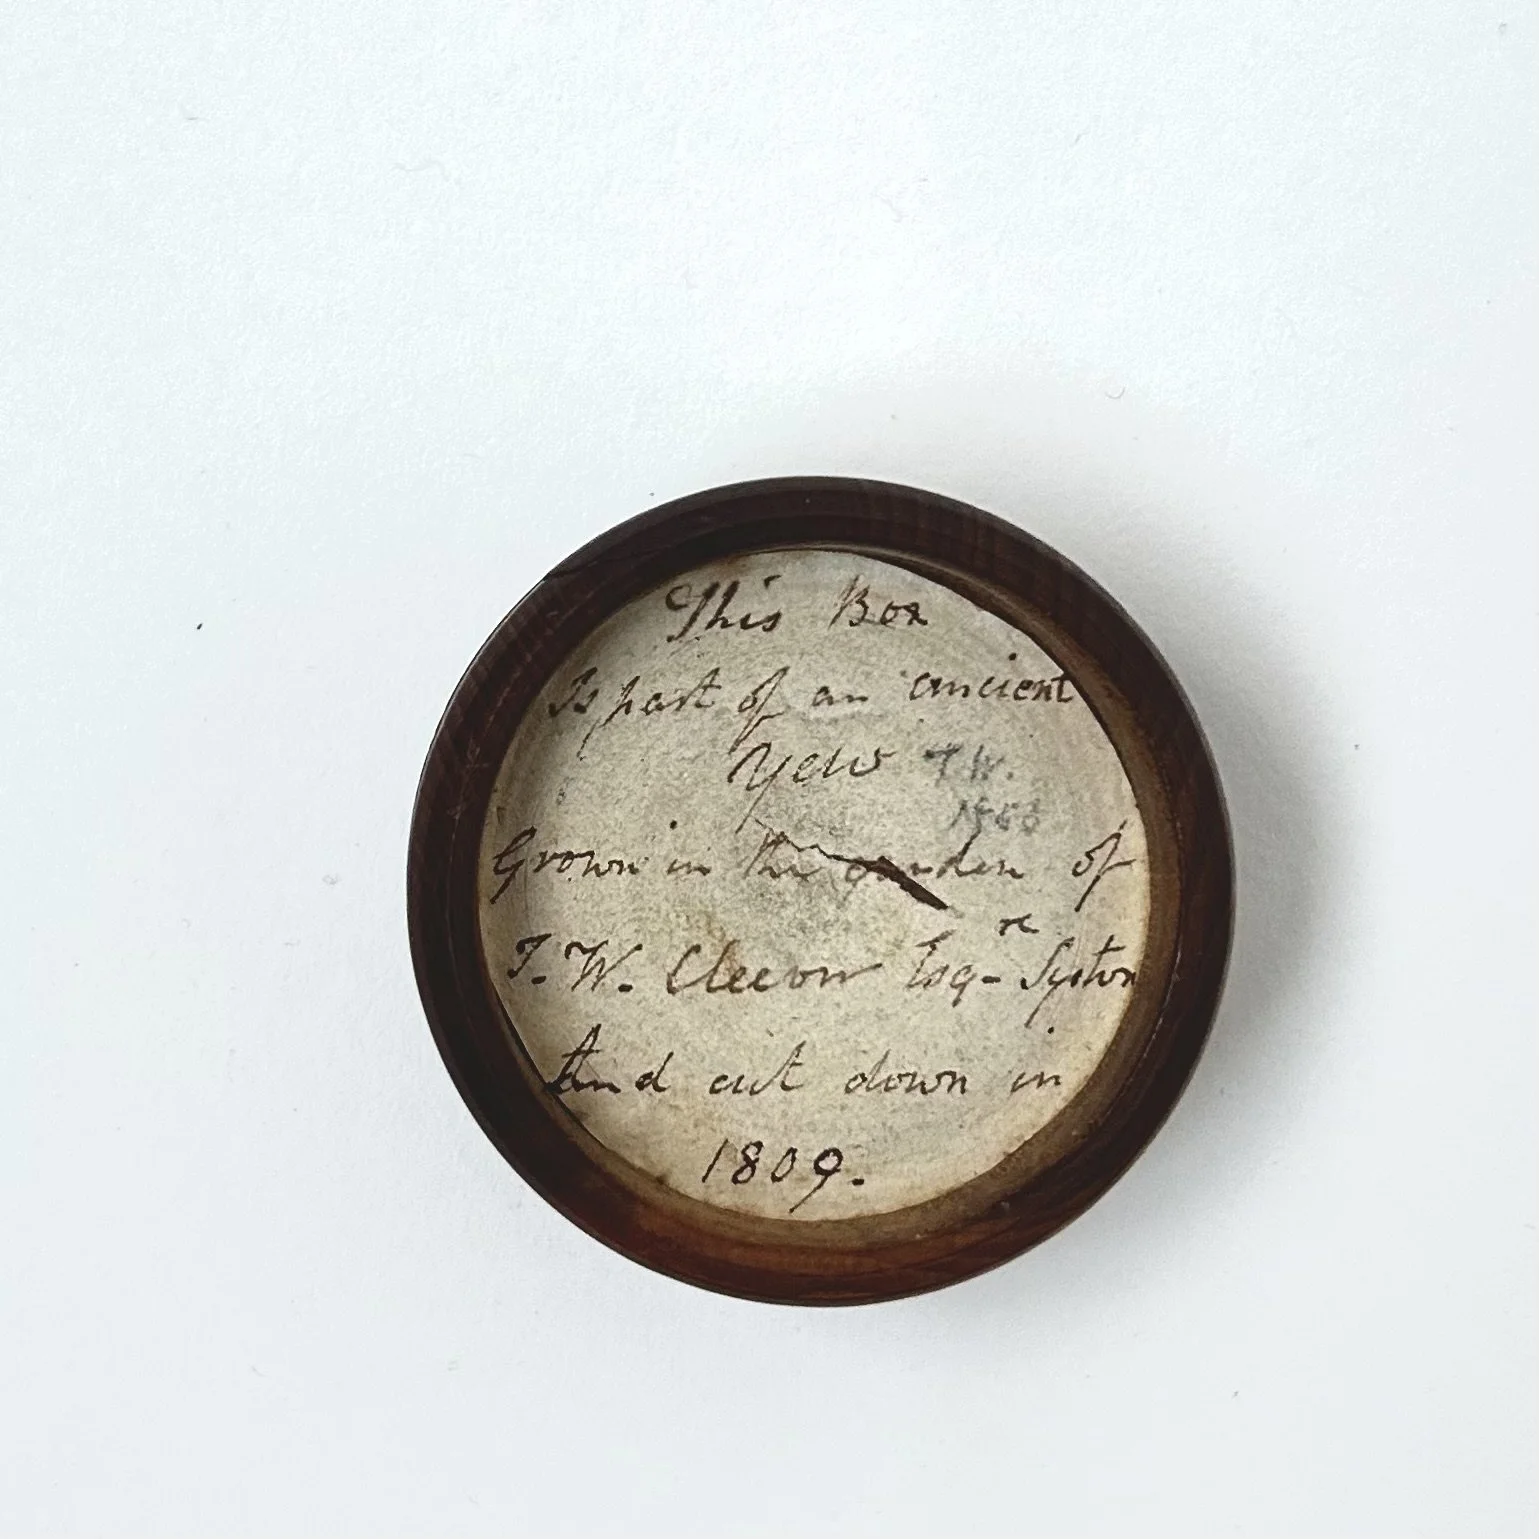 This Box
Is part of an ancient
Yew T.W.
Grown in the garden of
T. W. Cleeow Esq-re Syston
And cut down in
1809.